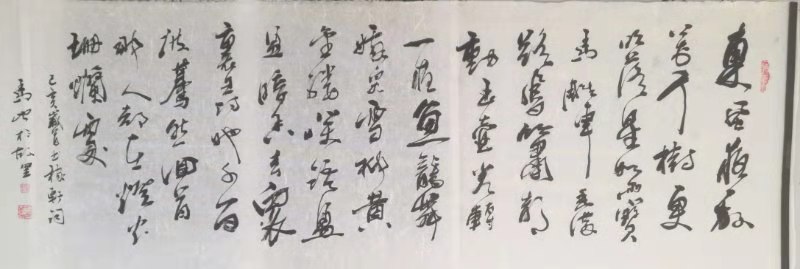 東風夜放
花千樹更
吹落星如雨寶
馬雕車香滿
路鳳簫聲
動玉壺光轉
一夜魚龍舞
蛾兒雪柳黃
金縷笑語盈
盈暗香去衆
裏尋他千百
度驀然回首
那人却在燈火
珊爛處
己亥稼軒詞
於故里